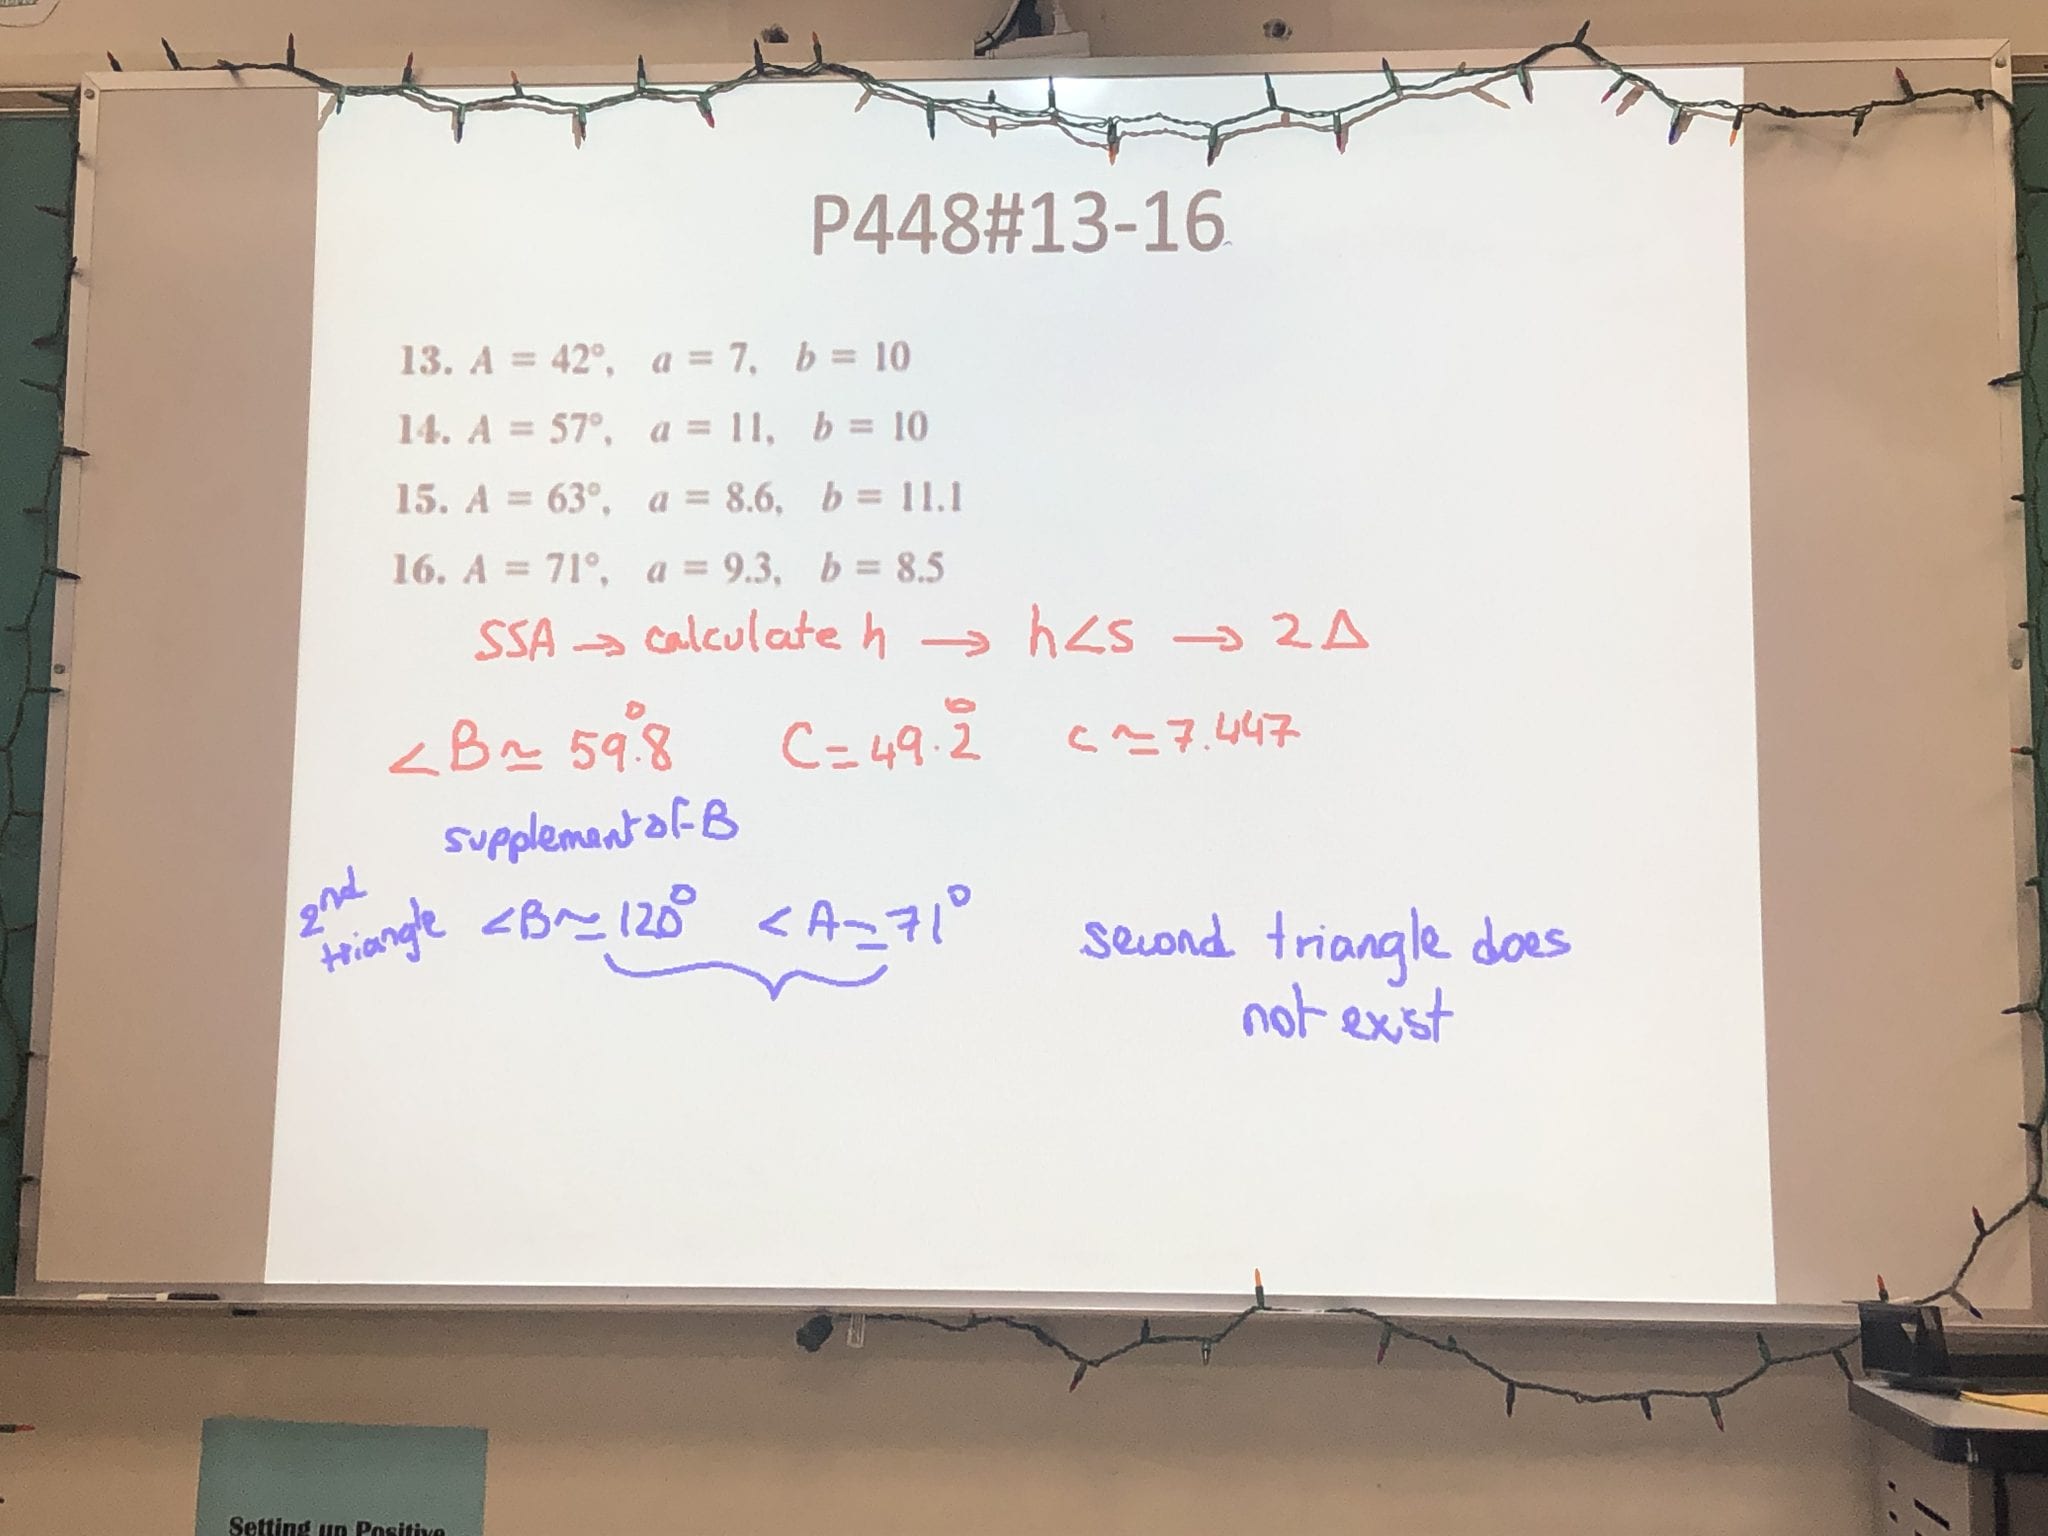 P448#13-16
13. A = 42°, a = 7, b = 10
14. A = 57°, a = 11, b = 10
15. A = 63°, a = 8.6, b = 11.1
16. A = 71°, a = 9.3, b = 8.5
SSA → calculate h → h<s → 2 Δ
<B ≃ 59.8° C = 49.2° c ≃ 7.447
supplement of B
2nd triangle <B ≃ 120° <A ≃ 71°
second triangle does
not exist
Setting up Positive